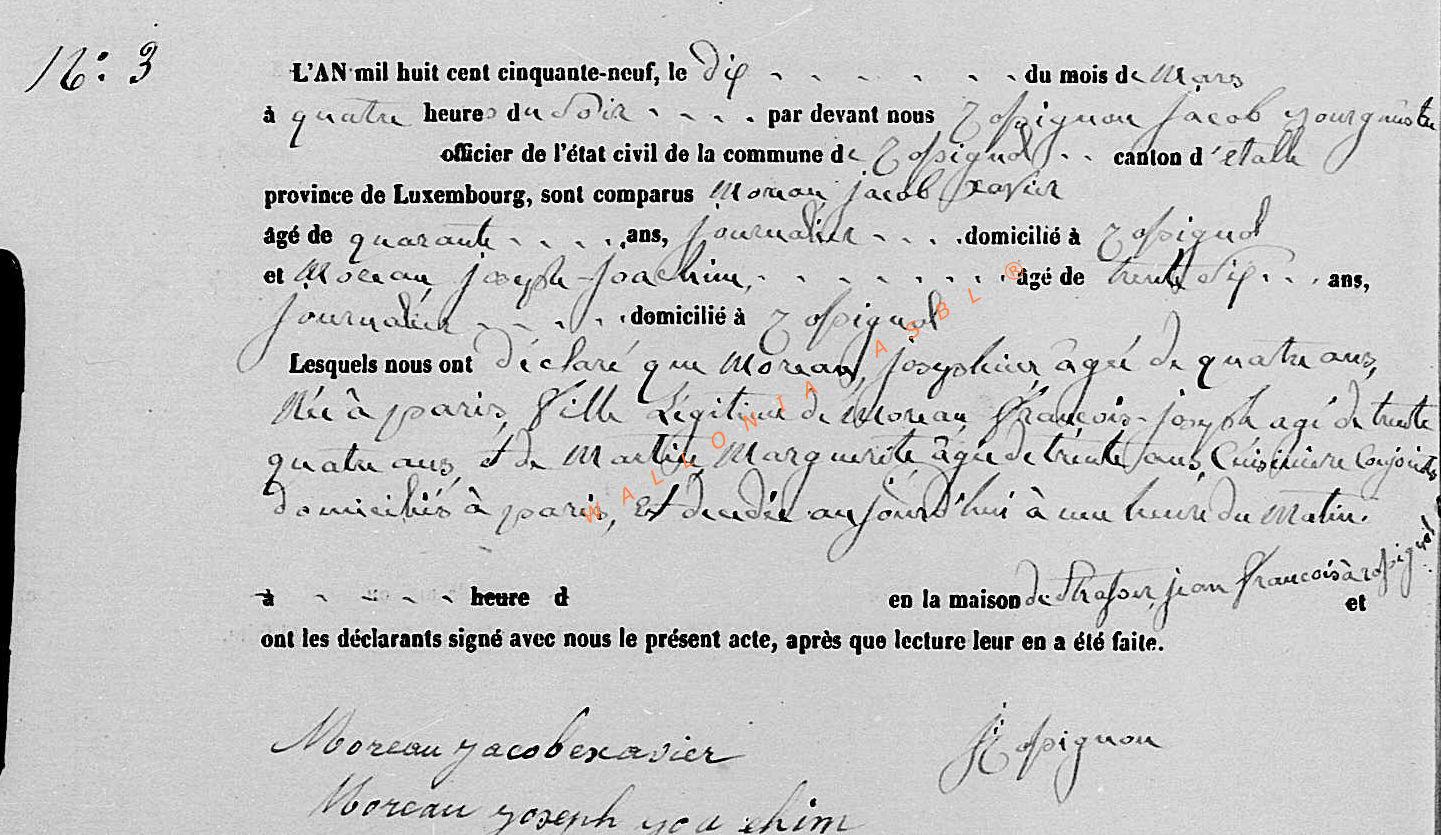 N: 3
L'AN mil huit cent cinquante-neuf, le dix du mois de Mars
à quatre heures du Soir par devant nous Rossignon Jacob Bourgmestre
officier de l'état civil de la commune de Rossignol canton d'étalle
province de Luxembourg, sont comparus Moreau, jacob xavier
âgé de quarante ans, journalier domicilié à Rossignol
et Moreau, joseph-joachim, âgé de trente dix ans,
journalier domicilié à Rossignol
Lesquels nous ont déclaré que Moreau, josephine, âgée de quatre ans,
Née à paris, fille Légitime de Moreau, François-joseph agé de trente
quatre ans, et de Martin, Marguerite âgée de trente ans, Cuisinière Conjoints
domiciliés à paris, Est décédée aujourd'hui à une heure du Matin.
à heure d en la maison de jean françois à rossignol et
ont les déclarants signé avec nous le présent acte, après que lecture leur en a été faite.
Moreau jacobexavier JRossignon
Moreau yoseph yoachim
WALLONIA ASBL ®